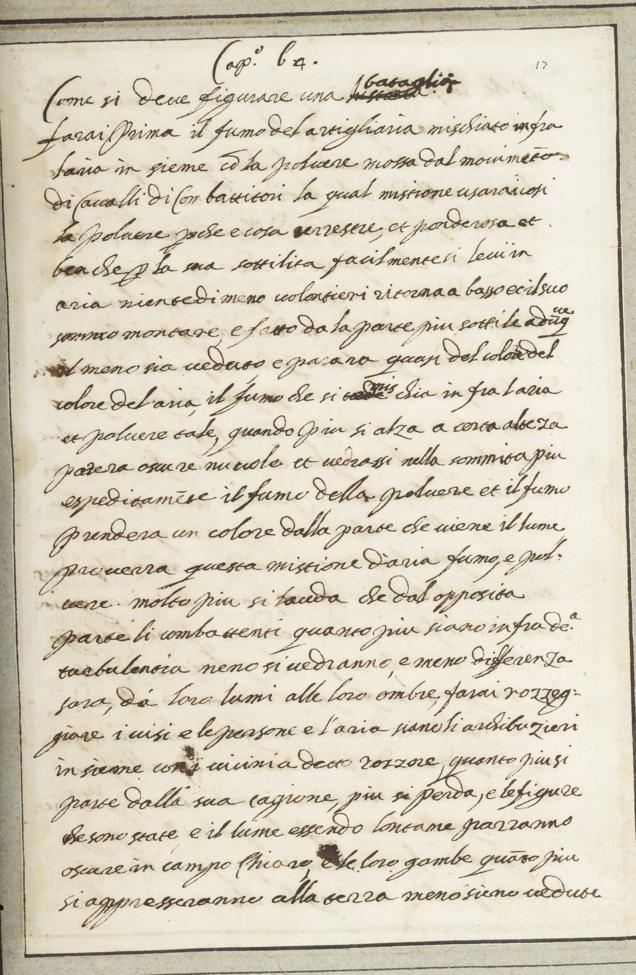 Cap.º 64.
17
Come si deve figurare una battaglia
farai Prima il fumo del artigliaria mischiato infra
laria in sieme cō la polvere mossa dal movimēto
di Cavalli di Combattitori la qual mistione usarai cosi
la polvere perche e cosa terrestre, et ponderosa et
benche per la sua sottilita facilmente si levi in
aria nientedimeno volontieri ritorna a basso et il suo
sommo montare, e fatto da la parte piu sottile adūq ue
il meno sia veduto e parara quasi del colore del
colore del aria, il fumo che si mischia in fra laria
et polvere tale, quando piu si alza a certa alteza
parera oscure nuvole et vedrassi nella sommita piu
espeditamēte il fumo della polvere et il fumo
prendera un colore dalla parte che viene il lume
proverra questa mistione d'aria fumo, e pol-
vere. molto piu si lauda che dal opposita
parte li combattenti quanto piu siano infra de.ª
turbulentia meno si vedranno, e meno differenza
sara, dá loro lumi alle loro ombre, farai rozzeg-
giare i visi e le persone e l'aria siano li archibuzieri
insieme con i vicinia detto rozzore, quanto piu si
parte dalla sua cagione, piu si perda, e le figure
che sono state, e il lume essendo lontane parranno
oscure in campo Chiaro, e le loro gambe quāto piu
si appresseranno alla terra meno sieno vedute